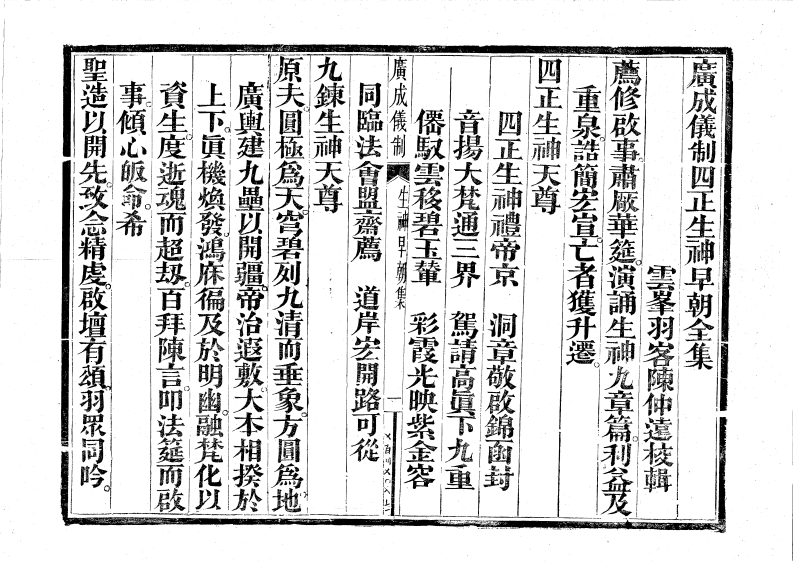 廣成儀制四正生神早朝全集
雲峯羽客陳仲遠校輯
薦修啟事。肅嚴華筵。演誦生神九章篇。利益及
重泉。誥簡宏宣。亡者獲升遷。
四正生神天尊
四正生神禮帝京　洞章敬啟錦函封
音揚大梵通三界　駕請高眞下九重
僊馭雲移碧玉輦　彩霞光映紫金容
同臨法會盟齋薦　道岸宏開路可從
廣成儀制　生神早朝集　一
九鍊生神天尊
原夫。圓極爲天。穹碧列九清而垂象。方圓爲地。
廣輿建九壘以開疆。帝治遐敷。大本相揆於
上下。眞機煥發。鴻庥徧及於明幽。融梵化以
資生。度逝魂而超刼。百拜陳言。叩法筵而啟
事。傾心皈命。希
聖造以開先。致念精虔。啟壇有頌。羽眾同吟。